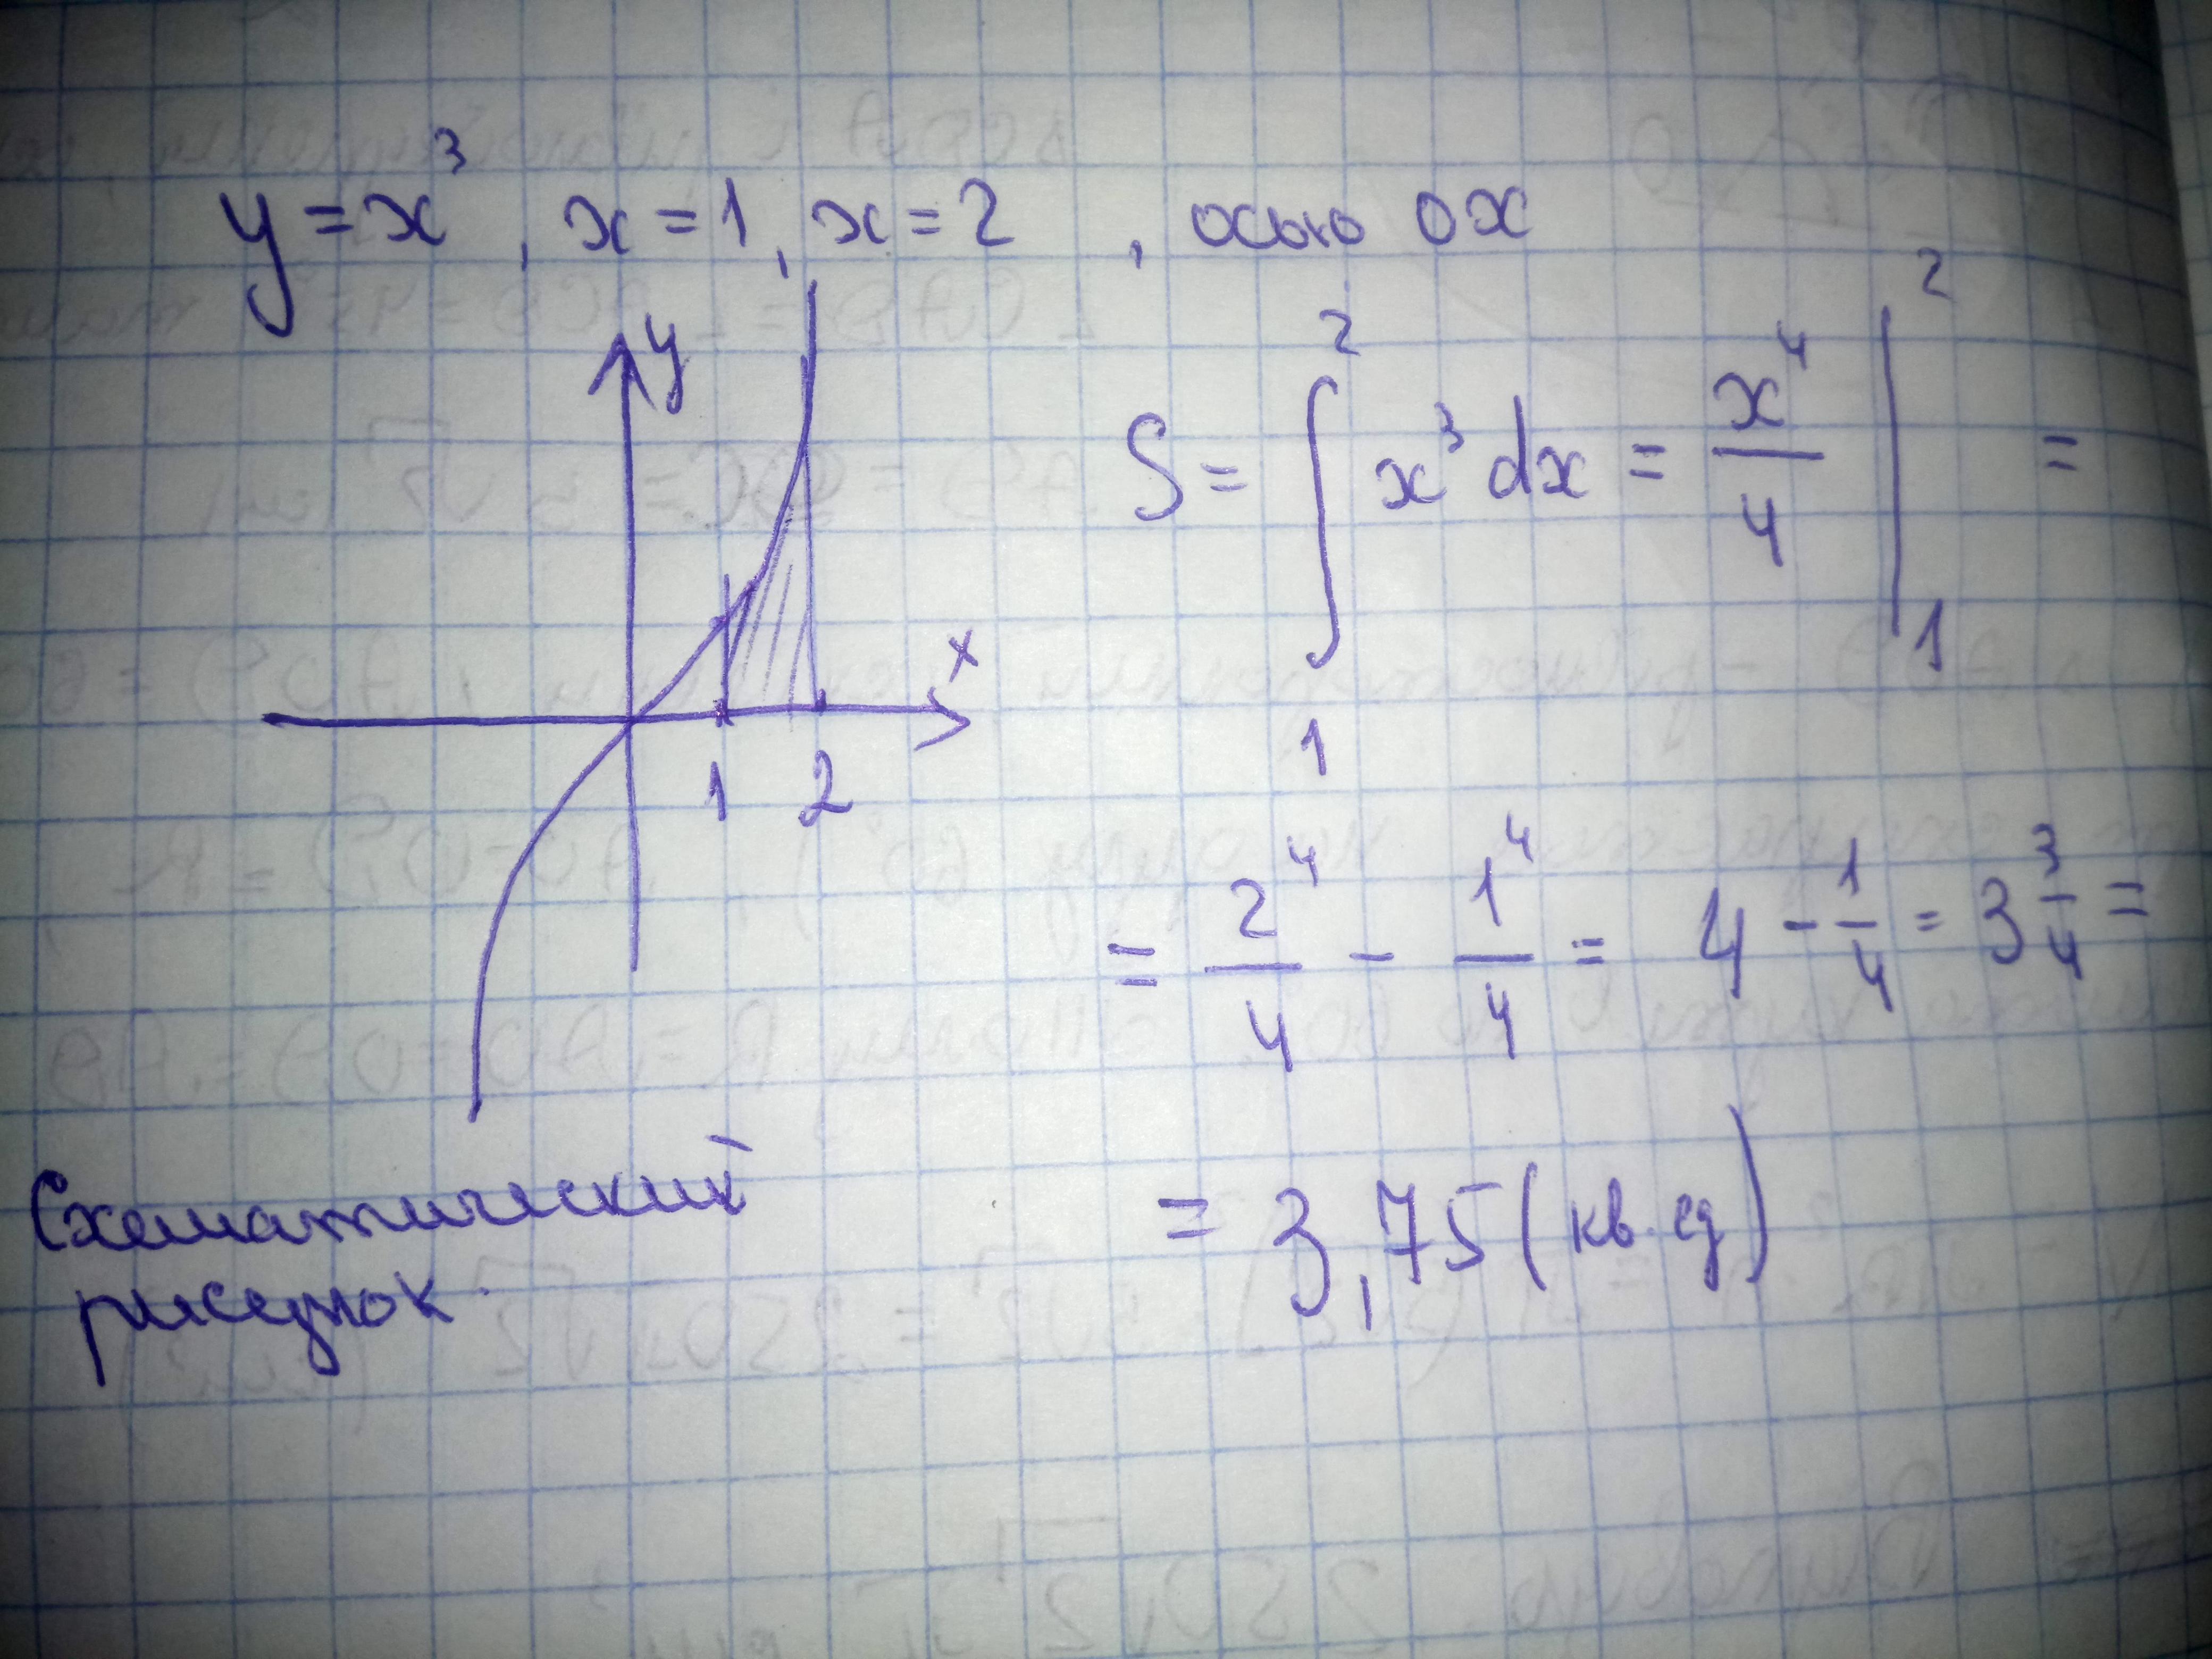 y = x³, x = 1, x = 2, осью ох
y
x
1 2
S = ∫₁² x³ dx = x⁴/4 |₁² =
= 2⁴/4 - 1⁴/4 = 4 - 1/4 = 3 3/4 =
= 3,75 (кв. ед)
Схематический
рисунок.